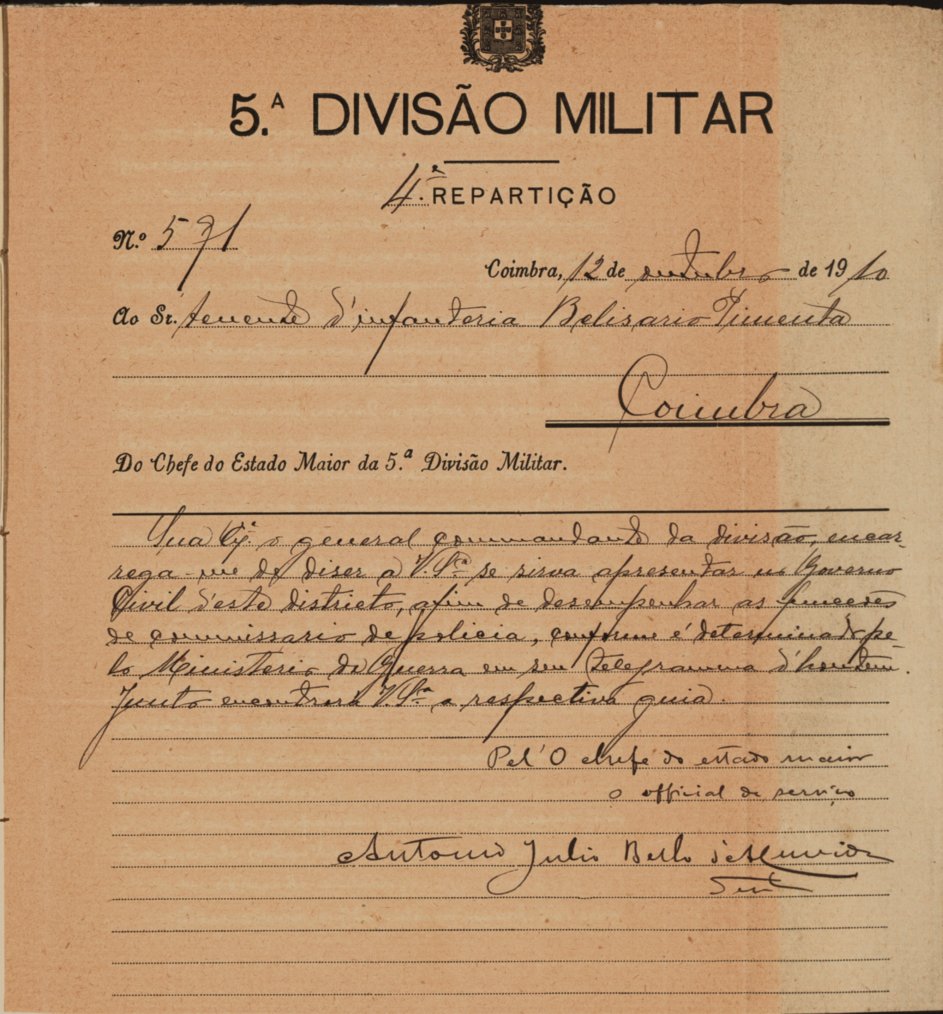 5.ª DIVISÃO MILITAR
4.ª REPARTIÇÃO
N.º 571
Coimbra, 12 de outubro de 1910
Ao Sr. tenente d'infanteria Belisario Pimenta
Coimbra
Do Chefe do Estado Maior da 5.ª Divisão Militar.
Sua Ex.ª o general commandante da divisão, encar-
rega-me de diser a V. S.ª se sirva apresentar no Governo
Civil d'este districto, afim de desempenhar as funccões
de commissario de policia, conforme é determinado pe-
lo Ministerio da Guerra em seu telegramma d'hontem.
Junto encontrará V. S.ª a respectiva guia.
Pel'O chefe do estado maior
o official de serviço
Antonio Julio Bello d'Almeida
Ten.te